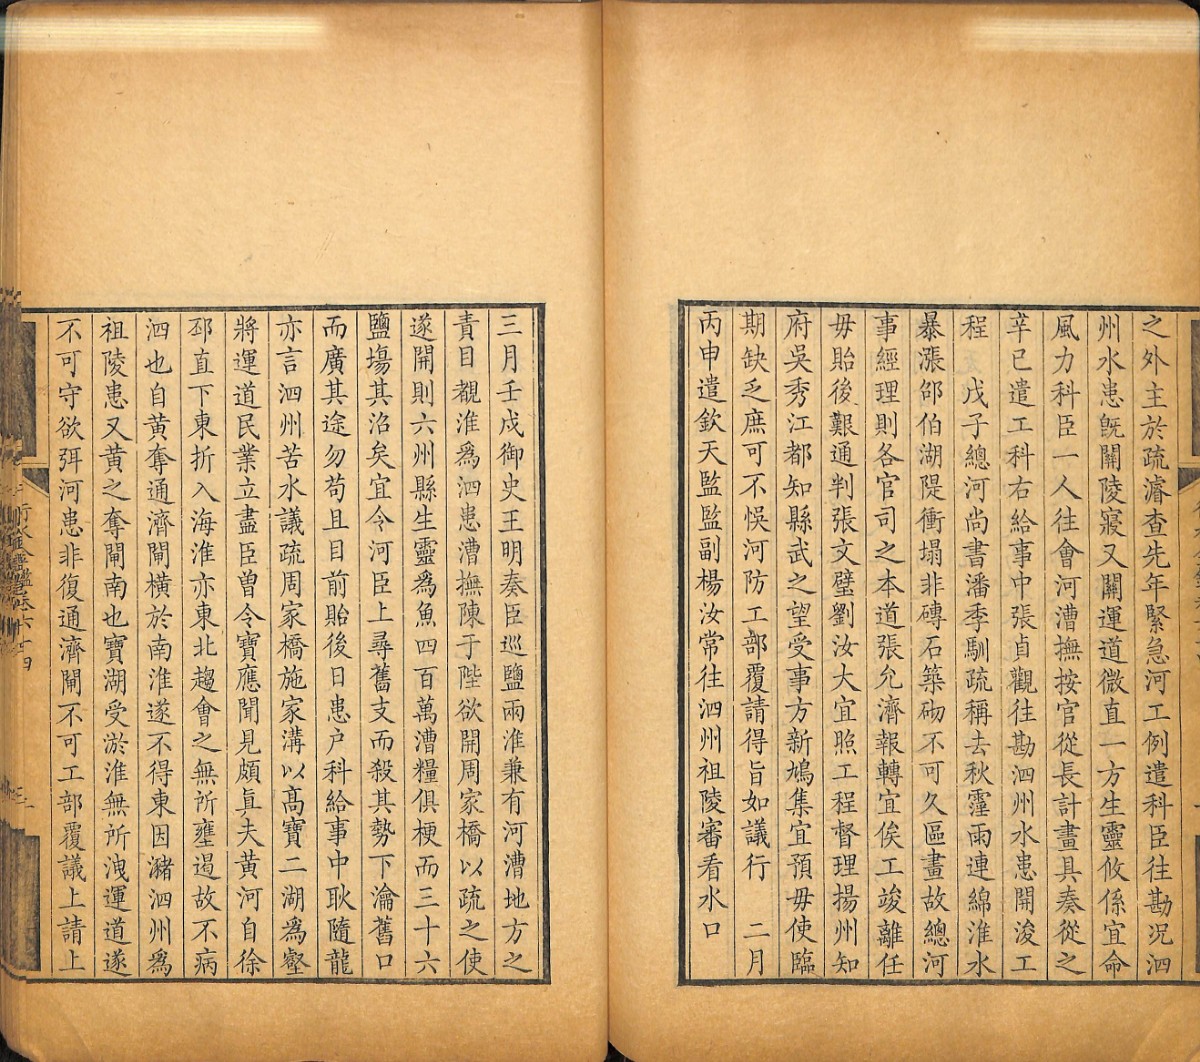 之外主於疏濬查先年緊急河工例遣科臣往勘况泗
州水患旣關陵寢又關運道微直一方生靈攸係宜命
風力科臣一人往會河漕撫按官從長計畫具奏從之
辛巳遣工科右給事中張貞觀往勘泗州水患開浚工
程　戊子總河尚書潘季馴疏稱去秋霪雨連綿淮水
暴漲邵伯湖隄衝塌非磚石築砌不可久區畫故總河
事經理則各官司之本道張允濟報轉宜俟工竣離任
毋貽後艱通判張文璧劉汝大宜照工程督理揚州知
府吳秀江都知縣武之望受事方新鳩集宜預毋使臨
期缺乏庶可不悞河防工部覆請得旨如議行　二月
丙申遣欽天監監副楊汝常往泗州祖陵審看水口
三月壬戌御史王明奏臣巡鹽兩淮兼有河漕地方之
責目覩淮為泗患漕撫陳于陛欲開周家橋以疏之使
遂開則六州縣生靈為魚四百萬漕糧俱梗而三十六
鹽塲其沿矣宜令河臣上尋舊支而殺其勢下瀹舊口
而廣其途勿苟且目前貽後日患户科給事中耿隨龍
亦言泗州苦水議疏周家橋施家溝以高寶二湖為壑
將運道民業立盡臣曾令寶應聞見頗眞夫黃河自徐
邳直下東折入海淮亦東北趨會之無所壅遏故不病
泗也自黃奪通濟閘橫於南淮遂不得東因瀦泗州為
祖陵患又黃之奪閘南也寶湖受淤淮無所洩運道遂
不可守欲弭河患非復通濟閘不可工部覆議上請上